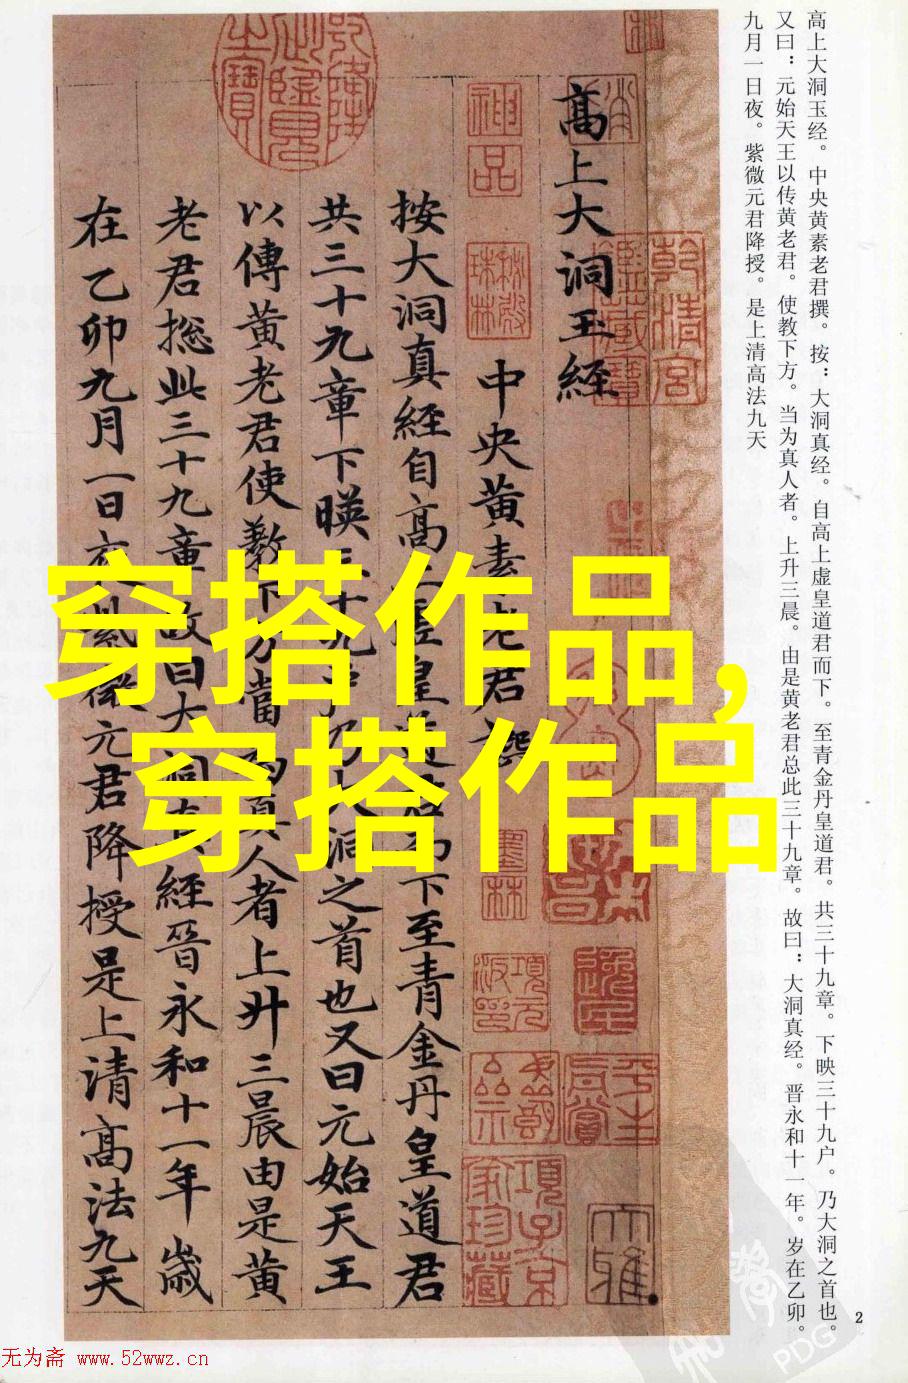 高上大洞玉经。中央黄素老君撰。按：大洞真经。自高上虚皇道君而下。至青金丹皇道君。共三十九章。下映三十九户。乃大洞之首也。
又曰：元始天王以传黄老君。使教下方。当为真人者。上升三晨。由是黄老君总此三十九章。故曰：大洞真经。晋永和十一年。岁在乙卯。
九月一日夜。紫微元君降授。是上清高法九天
高上大洞玉經
中央黄素老君撰
按大洞真經自高上虛皇道君而下至青金丹皇道君
共三十九章下暎三十九户乃大洞之首也又曰元始天王
以傳黄老君使教下方當為真人者上升三晨由是黄
老君捴此三十九章故曰大洞真經晉永和十一年歲
在乙卯九月一日夜紫微元君降授是上清髙法九天
神品
乾清宫鑑藏寶
墨林
項子京家珍藏
穿搭作品,
穿搭作品
2
无为斋 www.52wwz.cn
PDG